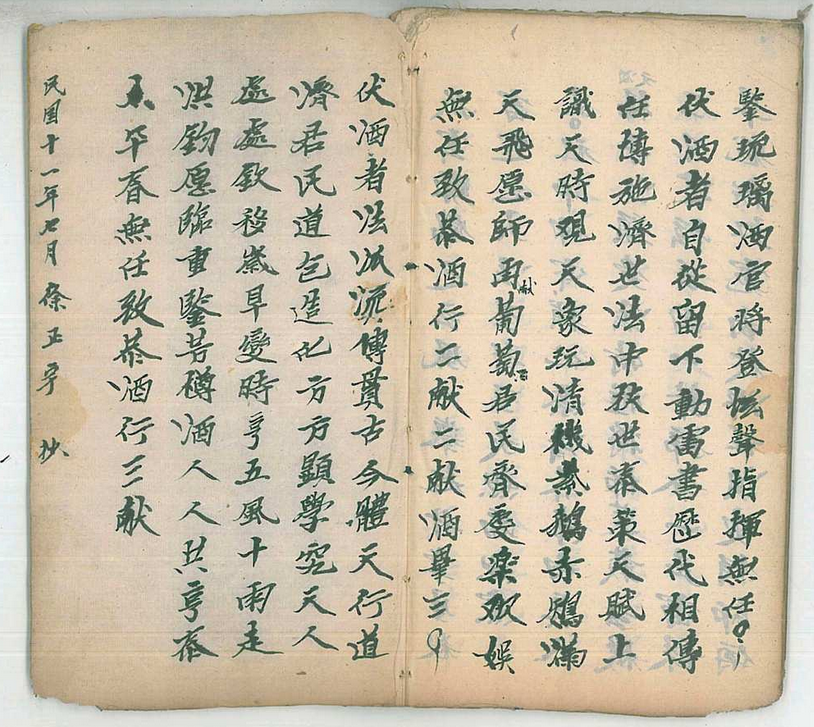 鑒琉璃酒官將登坛聲指揮無任
伏酒者自從留下動雷書歷代相傳
任博施濟世法中救世奉策天賦上
識天時观天象玩清機素鵝赤鴈滿
天飛愿師再献葡萄酒君民齊受樂欢娛
無任致恭酒行二献二献酒畢三
伏酒者法派流傳貫古今體天行道
濟君民道包造化方方顯學究天人
處處欽移歲旱變時亨五風十雨走
洪鈞愿臨重鑒芳樽酒人人共亨
太平春無任致恭酒行三献
民国十一年七月徐正亨 抄